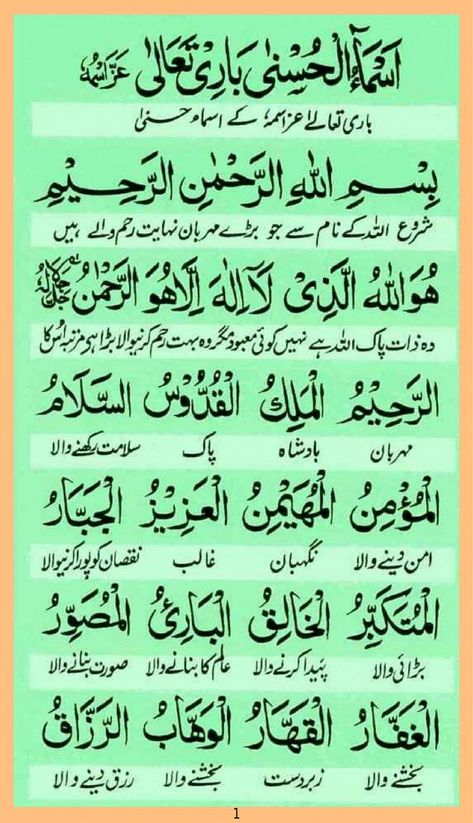 اَسْمَآءُ الْحُسْنٰی بَارِیْ تَعَالٰی عَزَّ اسْمُہٗ
باری تعالےٰ عز اسمہٗ کے اسماء حسنیٰ
بِسْمِ اللهِ الرَّحْمٰنِ الرَّحِيْمِ
شروع اللہ کے نام سے جو بڑے مہربان نہایت رحم والے ہیں
هُوَ اللهُ الَّذِیْ لَآ اِلٰهَ اِلَّا هُوَ الرَّحْمٰنُ جَلَّ جَلَالُهٗ
وہ ذات پاک اللہ ہے نہیں کوئی معبود مگر وہ بہت رحم کرنیوالا بڑا ہی مرتبہ اس کا
الرَّحِيْمُ الْمَلِكُ الْقُدُّوْسُ السَّلَامُ
مہربان بادشاہ پاک سلامت رکھنے والا
الْمُؤْمِنُ الْمُهَيْمِنُ الْعَزِيْزُ الْجَبَّارُ
امن دینے والا نگہبان غالب نقصان کو پورا کرنیوالا
الْمُتَكَبِّرُ الْخَالِقُ الْبَارِئُ الْمُصَوِّرُ
بڑائی والا پیدا کرنے والا عالم کا بنانے والا صورت بنانے والا
الْغَفَّارُ الْقَهَّارُ الْوَهَّابُ الرَّزَّاقُ
بخشنے والا زبردست بخشنے والا رزق دینے والا
1